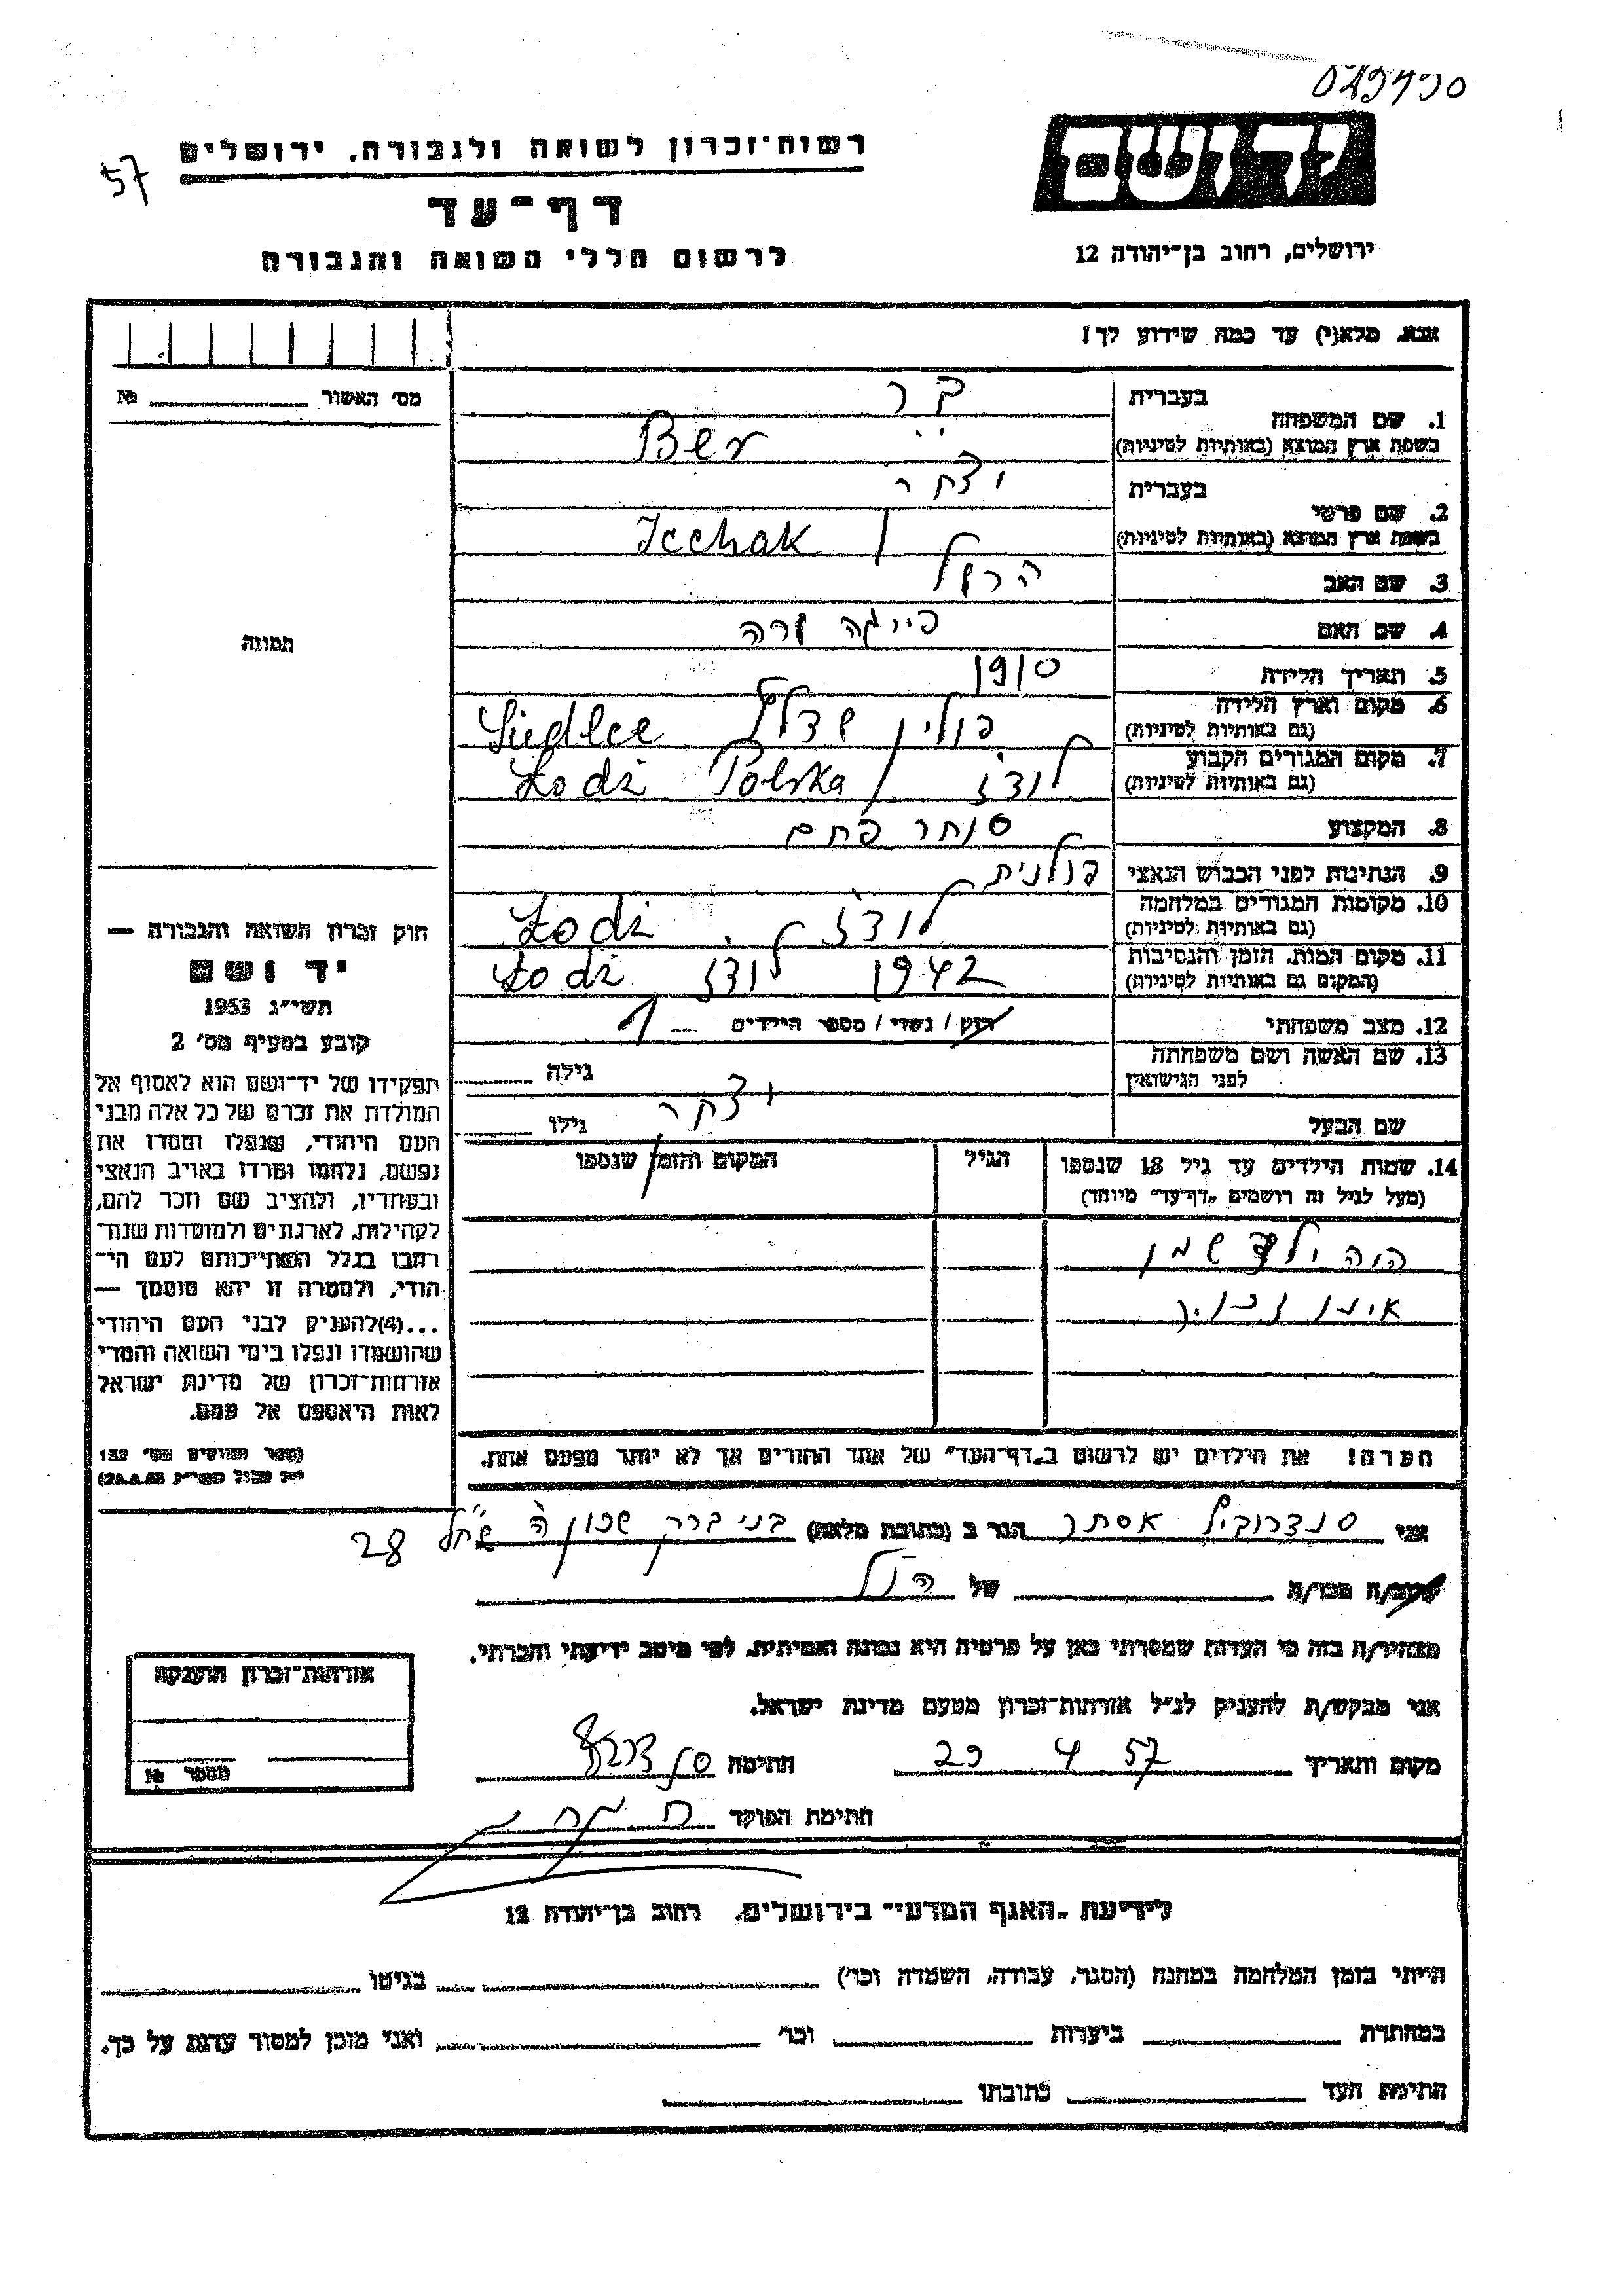 57
רשות־זכרון לשואה ולגבורה, ירושלים
דף־עד
לרשום חללי השואה והגבורה
יד ושם
ירושלים, רחוב בן־יהודה 12
אנא, מלא(י) עד כמה שידוע לך!
מס׳ האשור №
1. שם המשפחה
בעברית בר
בשפת ארץ המוצא (באותיות לטיניות) Ber
2. שם פרטי
בעברית יצחק
בשפת ארץ המוצא (באותיות לטיניות) Icchak
3. שם האב הרשל
4. שם האם פייגה שרה
5. תאריך הלידה 1910
6. מקום וארץ הלידה
(גם באותיות לטיניות) פולין שדלץ Siedlce
7. מקום המגורים הקבוע
(גם באותיות לטיניות) לודז / Polska Łodź
8. המקצוע סוחר פחם
9. הנתינות לפני הכבוש הנאצי פולנית
10. מקומות המגורים במלחמה
(גם באותיות לטיניות) לודז. Łodź
11. מקום המות, הזמן והנסיבות
(המקום גם באותיות לטיניות) 1942 לודז Łodź
12. מצב משפחתי רווק / נשוי / מספר הילדים 1
13. שם האשה ושם משפחתה
לפני הנישואין גילה
שם הבעל יצחק גילו
14. שמות הילדים עד גיל 18 שנספו
(מעל לגיל זה רושמים „דף־עד״ מיוחד)
הגיל
המקום והזמן שנספו
היה ילד שמו
אינו זכור
הערה! את הילדים יש לרשום ב„דף־העד״ של אחד ההורים אך לא יותר מפעם אחת.
תמונה
חוק זכרון השואה והגבורה —
יד ושם
תשי״ג 1953
קובע בסעיף מס׳ 2
תפקידו של יד־ושם הוא לאסוף אל
המולדת את זכרם של כל אלה מבני
העם היהודי, שנפלו ומסרו את
נפשם, נלחמו ומרדו באויב הנאצי
ובעוזריו, ולהציב שם וזכר להם,
לקהילות, לארגונים ולמוסדות שנח־
רבו בגלל השתייכותם לעם הי־
הודי, ולמטרה זו יהא מוסמך —
...(4)להעניק לבני העם היהודי
שהושמדו ונפלו בימי השואה והמרי
אזרחות־זכרון של מדינת ישראל
לאות היאספם אל עמם.
(ספר החוקים מס׳ 132
אני אסתר הגר ב (כתובת מלאה) בני ברק שכון ה׳ 28
קרוב/ה מכר/ה של
מצהיר/ה בזה כי העדות שמסרתי כאן על פרטיה היא נכונה ואמיתית, לפי מיטב ידיעתי והכרתי.
אני מבקש/ת להעניק לנ״ל אזרחות־זכרון מטעם מדינת ישראל.
מקום ותאריך 57 4 29 חתימה
חתימת הפוקד
אזרחות־זכרון הוענקה
מספר №
לידיעת „האגף המדעי״ בירושלים, רחוב בן־יהודה 12
הייתי בזמן המלחמה במחנה (הסגר, עבודה, השמדה וכו׳) בגיטו
במחתרת ביערות וכו׳ ואני מוכן למסור עדות על כך.
חתימת העד כתובתו